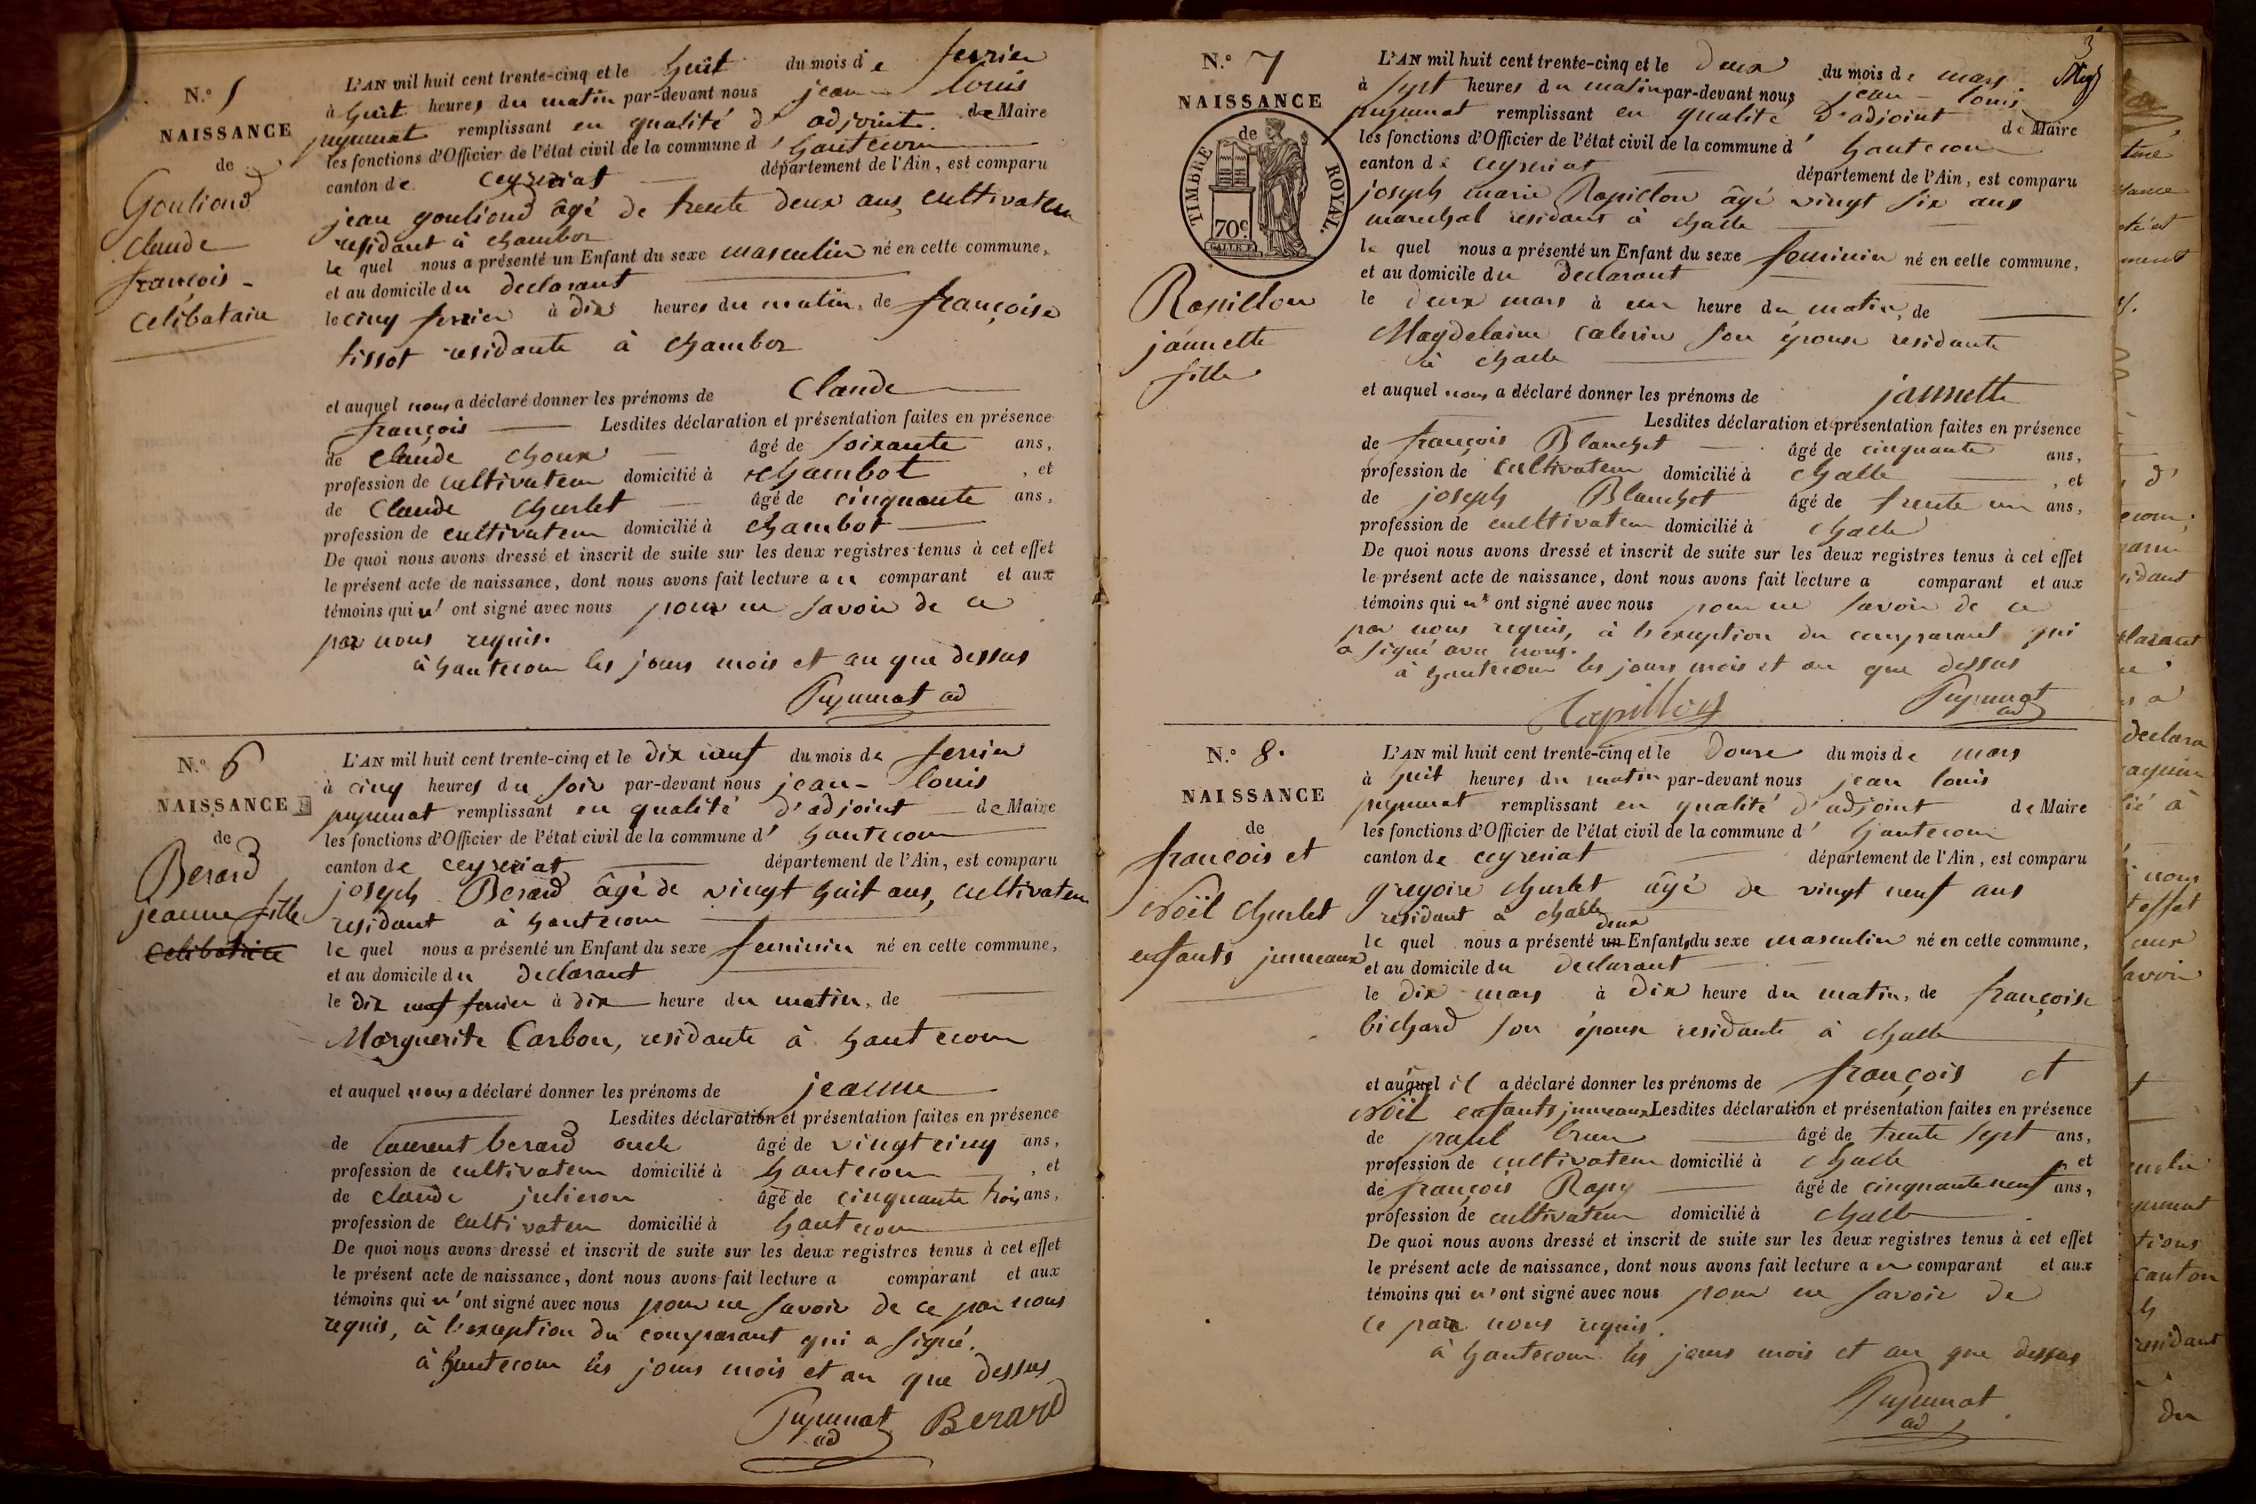 N.º 5
NAISSANCE
de
Gouliond
claude
françois -
celibataire
L'AN mil huit cent trente-cinq et le huit du mois de fevrier
à huit heures du matin par-devant nous jean - louis
puyumat remplissant en qualité d' adjoint. de Maire
les fonctions d'Officier de l'état civil de la commune d' hautecour
canton de ceyzeriat département de l'Ain, est comparu
jean gouliond âgé de trente deux ans, cultivateur
residant à chambor
le quel nous a présenté un Enfant du sexe masculin né en cette commune,
et au domicile du declarant
le cinq fevrier à dix heures du matin, de françoise
tissot residante à chambor
et auquel nous a déclaré donner les prénoms de Claude
françois Lesdites déclaration et présentation faites en présence
de claude choux âgé de soixante ans,
profession de cultivateur domicilié à chambot , et
de Claude Churlet âgé de cinquante ans,
profession de cultivateur domicilié à chambot
De quoi nous avons dressé et inscrit de suite sur les deux registres tenus à cet effet
le présent acte de naissance, dont nous avons fait lecture au comparant et aux
témoins qui n' ont signé avec nous pour ne savoir de ce
par nous requis.
à hautecour les jours mois et an que dessus
Puyumat ad
N.º 6
NAISSANCE
de
Berard
jeanne fille
celibataire
L'AN mil huit cent trente-cinq et le dix neuf du mois de fevrier
à cinq heures du soir par-devant nous jean - louis
puyumat remplissant en qualité d'adjoint de Maire
les fonctions d'Officier de l'état civil de la commune d' hautecour
canton de ceyzeriat département de l'Ain, est comparu
joseph Berard âgé de vingt huit ans, cultivateur
residant à hautecour
le quel nous a présenté un Enfant du sexe feminin né en cette commune,
et au domicile du declarant
le dix neuf fevrier à dix heure du matin, de
Marguerite Carbon, residante à hautecour
et auquel nous a déclaré donner les prénoms de jeanne
Lesdites déclaration et présentation faites en présence
de Laurent berard oncle âgé de vingt cinq ans,
profession de cultivateur domicilié à hautecour , et
de claude julieron âgé de cinquante trois ans,
profession de cultivateur domicilié à hautecour
De quoi nous avons dressé et inscrit de suite sur les deux registres tenus à cet effet
le présent acte de naissance, dont nous avons fait lecture a comparant et aux
témoins qui n' ont signé avec nous pour ne savoir de ce par nous
requis, à l'exception du comparant qui a signé.
à hautecour les jours mois et an que dessus
Puyumat ad Berard
3
N.º 7
NAISSANCE
de
TIMBRE ROYAL.
70c
Rapillon
jannette
fille
L'AN mil huit cent trente-cinq et le deux du mois de mars
à sept heures du matin par-devant nous jean - louis
puyumat remplissant en qualité d'adjoint de Maire
les fonctions d'Officier de l'état civil de la commune d' hautecour
canton de ceyzeriat département de l'Ain, est comparu
joseph marie Rapillon âgé vingt six ans
marechal residant à challe
le quel nous a présenté un Enfant du sexe feminin né en cette commune,
et au domicile du declarant
le deux mars à un heure du matin, de
Magdelaine caterin son épouse residante
à challe
et auquel nous a déclaré donner les prénoms de jannette
Lesdites déclaration et présentation faites en présence
de françois Blanchet âgé de cinquante ans,
profession de cultivateur domicilié à challe , et
de joseph Blanchet âgé de trente un ans,
profession de cultivateur domicilié à challe
De quoi nous avons dressé et inscrit de suite sur les deux registres tenus à cet effet
le présent acte de naissance, dont nous avons fait lecture a comparant et aux
témoins qui n' ont signé avec nous pour ne savoir de ce
par nous requis, à l'exception du comparant qui
a signé avec nous.
à hautecour les jours mois et an que dessus
Rapillon Puyumat ad
N.º 8.
NAISSANCE
de
francois et
Noël Churlet
enfants jumeaux
L'AN mil huit cent trente-cinq et le douze du mois de mars
à huit heures du matin par-devant nous jean louis
puyumat remplissant en qualité d'adjoint de Maire
les fonctions d'Officier de l'état civil de la commune d' hautecour
canton de ceyzeriat département de l'Ain, est comparu
gregoire churlet âgé de vingt neuf ans
residant à challe
deux
le quel nous a présenté un Enfants du sexe masculin né en cette commune,
et au domicile du declarant
le dix mars à dix heure du matin, de françoise
bichard son épouse residante à challe
et auquel il a déclaré donner les prénoms de françois et
Noël enfants jumeaux Lesdites déclaration et présentation faites en présence
de paul brun âgé de trente sept ans,
profession de cultivateur domicilié à challe , et
de françois Rapy âgé de cinquante neuf ans,
profession de cultivateur domicilié à challe
De quoi nous avons dressé et inscrit de suite sur les deux registres tenus à cet effet
le présent acte de naissance, dont nous avons fait lecture au comparant et aux
témoins qui n' ont signé avec nous pour ne savoir de
ce par nous requis.
à hautecour les jours mois et an que dessus
Puyumat
ad